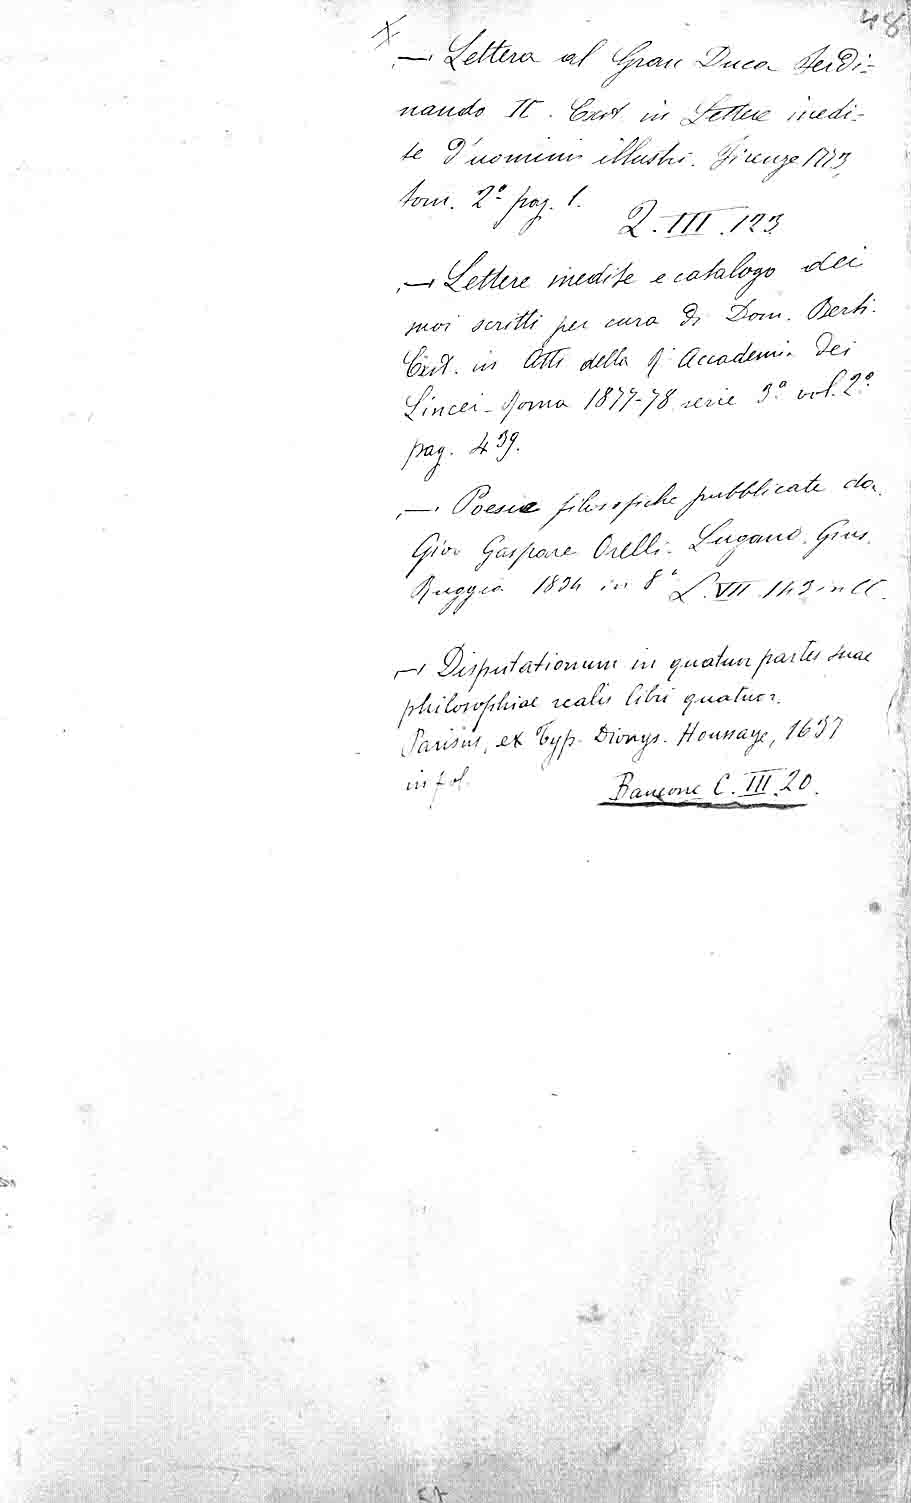 48
— Lettera al Gran Duca Ferdi=
nando II. Exst. in Lettere inedi=
te d'uomini illustri. Firenze 1773,
tom. 2º pag. 1.
2. III. 123
— Lettere inedite e catalogo dei
suoi scritti per cura di Dom. Berti.
Exst. in Atti della R. Accademia dei
Lincei - Roma 1877-78 serie 3ª vol. 2º
pag. 439.
— Poesie filosofiche pubblicate da
Giov Gaspare Orelli. Lugano. Gius.
Ruggia 1834 in 8º L. VII. 143 in CC.
— Disputationum in quatuor partes suae
philosophiae realis libri quatuor.
Parisiis, ex Typ. Dionys. Houssaye, 1637
in fol.
Bancone C. III. 20.